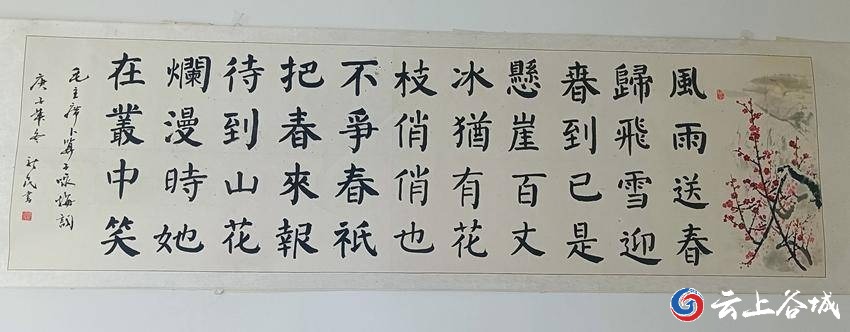 風雨送春
歸飛雪迎
春到已是
懸崖百丈
冰猶有花
枝俏俏也
不爭春祇
把春來報
待到山花
爛漫時她
在叢中笑
毛主席卜算子咏梅詞
庚子年冬
云上谷城